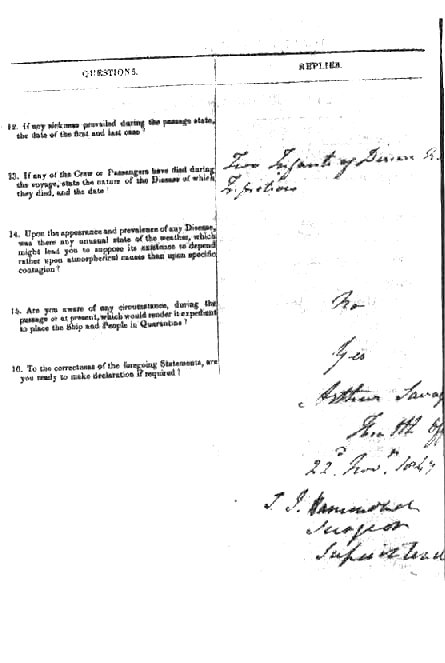 QUESTIONS.
REPLIES.
12. If any sickness prevailed during the passage state,
the date of the first and last case
13. If any of the Crew or Passengers have died during
the voyage, state the nature of the Disease of which
they died, and the date
Two Infants of
14. Upon the appearance and prevalence of any Disease,
was there any unusual state of the weather, which
might lead you to suppose its existence to depend
rather upon atmospherical causes than upon specific
contagion?
15. Are you aware of any circumstance, during the
passage or at present, which would render it expedient
to place the Ship and People in Quarantine?
No
16. To the correctness of the foregoing Statements, are
you ready to make declaration if required?
Yes
Arthur Savag
22d Novr.
T J Hammond
Surgeon
Superintend